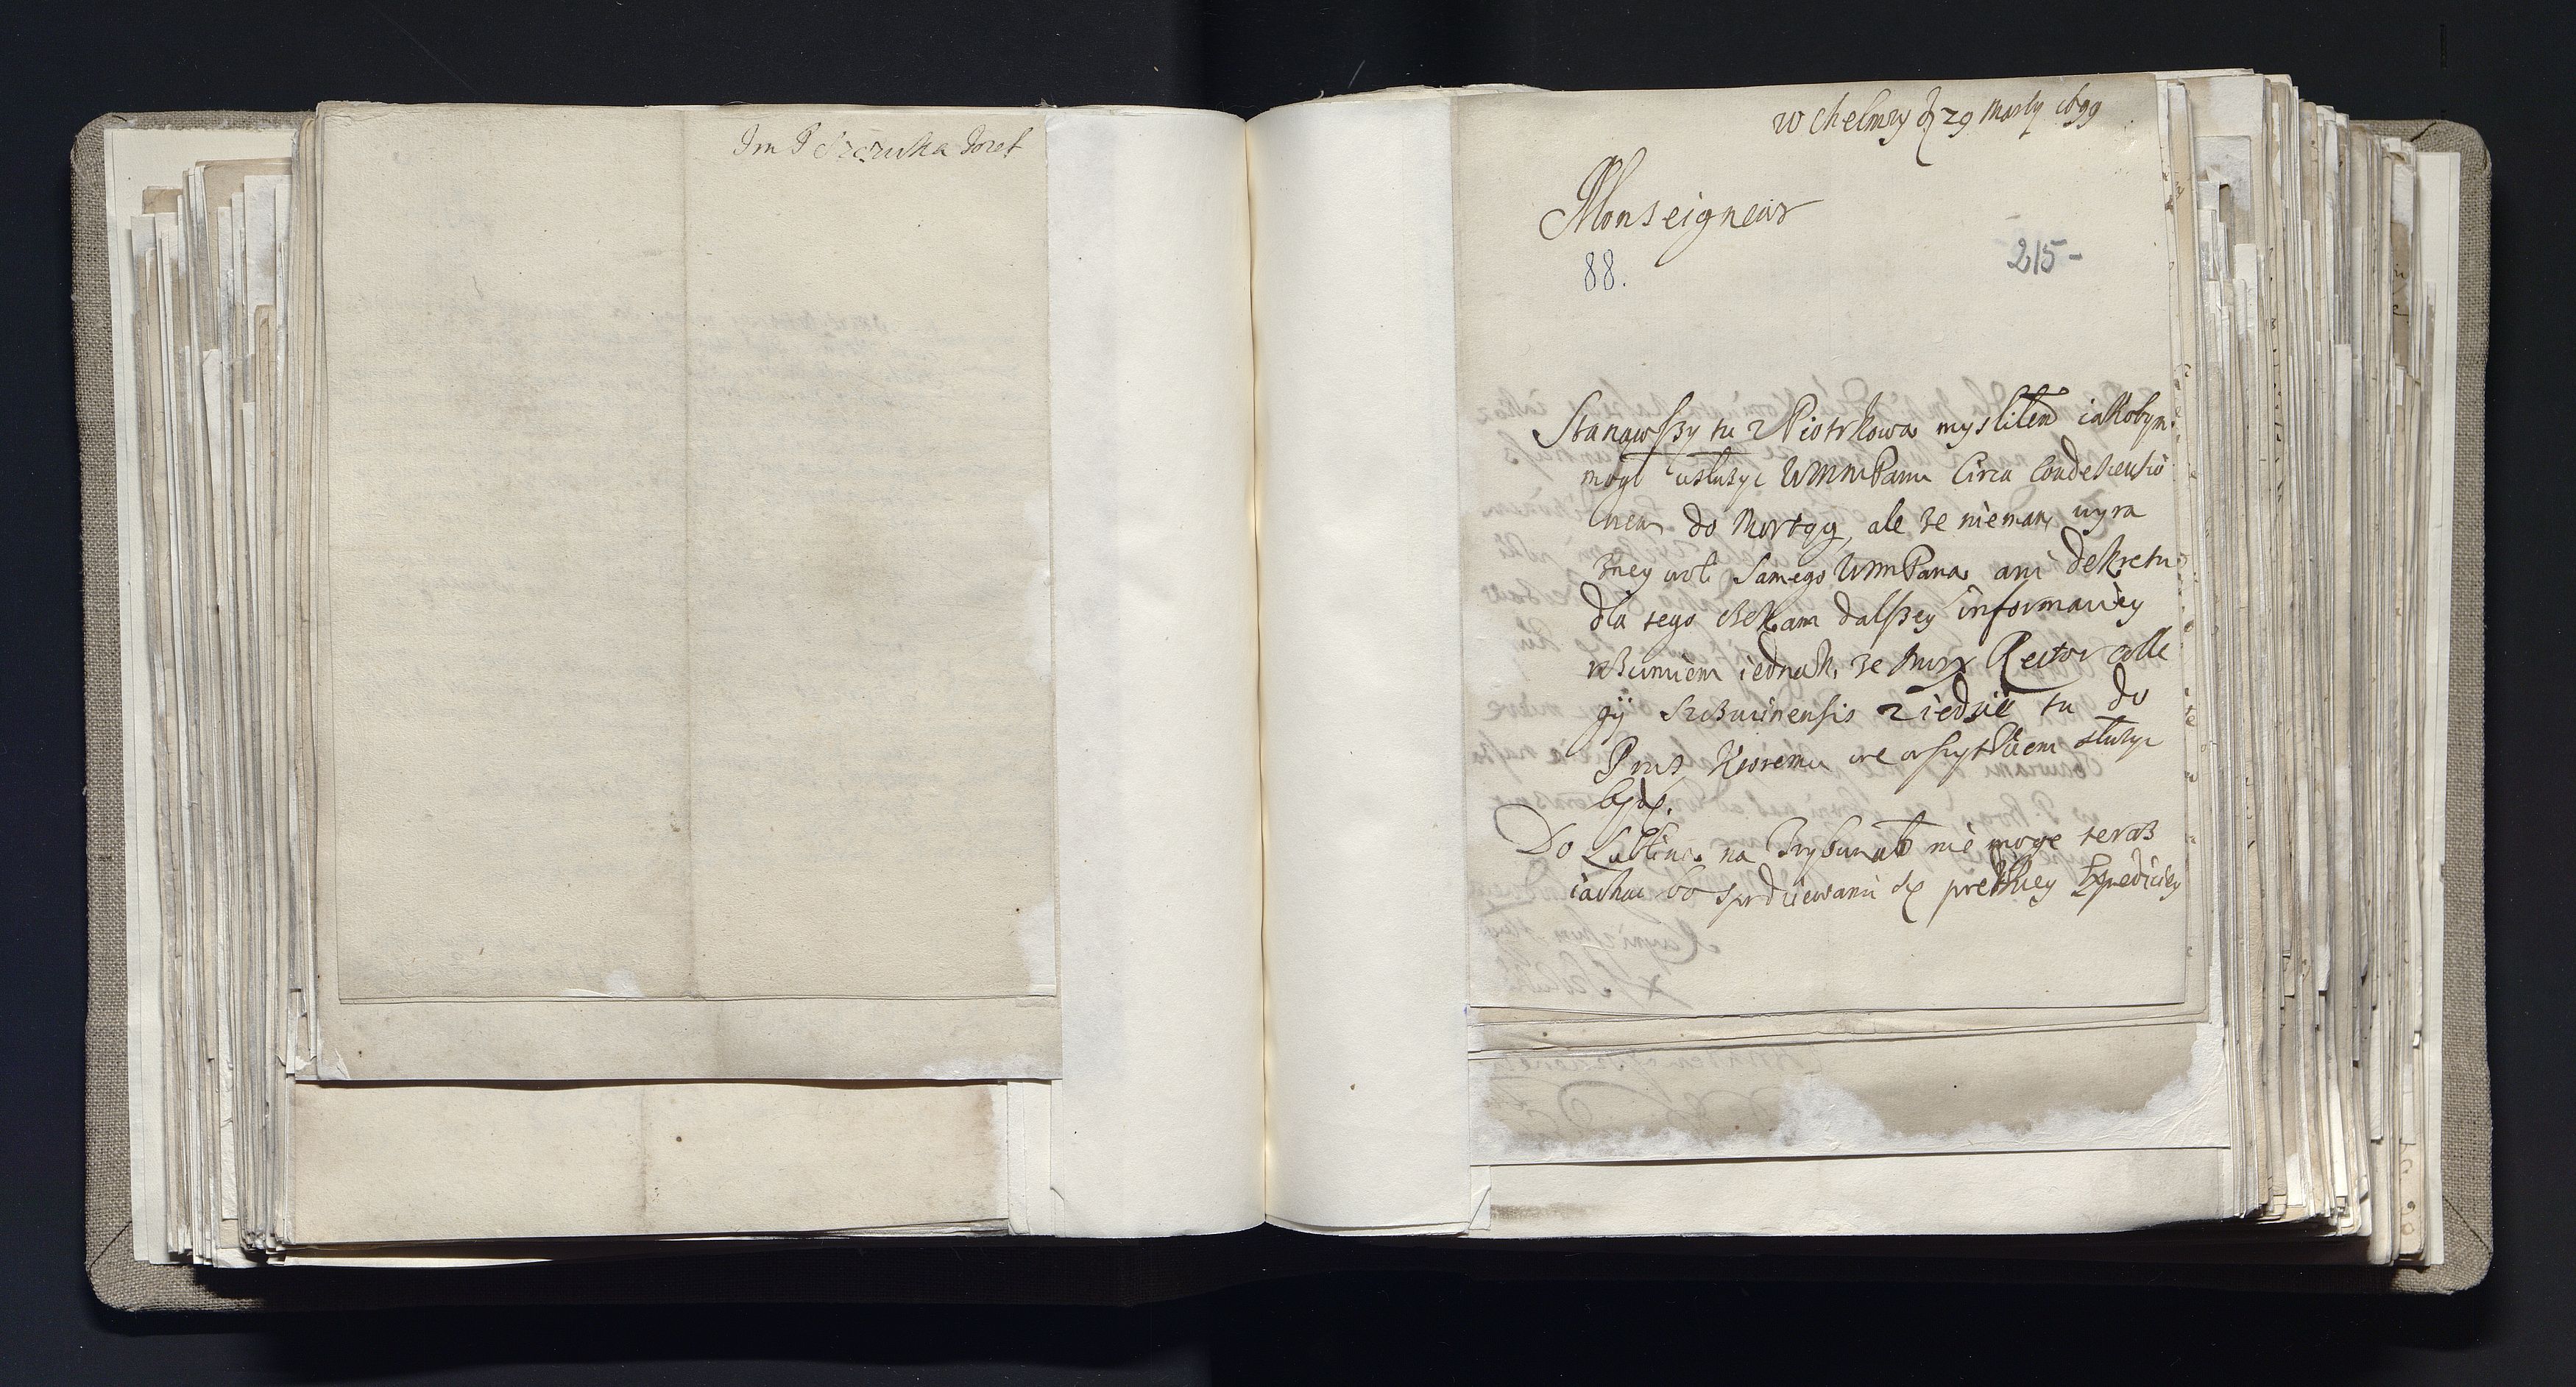 Im P Szczuka Jozef
w Chelmzy d 29 Marty 1699
Monseigneur
88.
215-
Stanąwszy tu z Piotrkowa myslilem iakobym
mogl usłużyc WMM Panu Circa Condescensio
nem do Mortęg, ale że niemam wyra
zney woli samego WMM Pana ani dekretu
dla tego czekam dalszey informaciey
rozumiem iednak, że Rector Colle
gij ziedzie tu do
Prus ktoremu we wszytkiem służyc
będę.
Do Lublina na Trybunał nie moge teraz
iachac bo spodziewam się prętkiey Expediciey